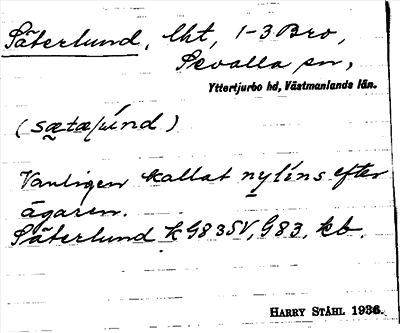 Säterlund, lht, 1-3 Bro,
Sevalla sn,
Yttertjurbo hd, Västmanlands län.
(sætæ/únd)
Vanligen kallat nylíns efter
ägaren.
Säterlund k G83SV, G83, kb.
HARRY STÅHL 1936.